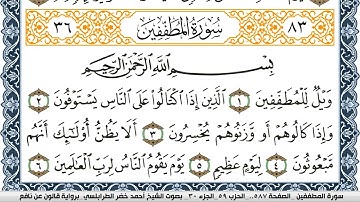 ٣٦ سُورَةُ المُطَفِّفِينَ ٨٣
بِسْمِ اللَّهِ الرَّحْمَٰنِ الرَّحِيمِ
وَيْلٌ لِلْمُطَفِّفِينَ ١ الَّذِينَ إِذَا اكْتَالُوا عَلَى النَّاسِ يَسْتَوْفُونَ ٢
وَإِذَا كَالُوهُمْ أَو وَّزَنُوهُمْ يُخْسِرُونَ ٣ أَلَا يَظُنُّ أُوْلَٰئِكَ أَنَّهُم
مَبْعُوثُونَ ٤ لِيَوْمٍ عَظِيمٍ ٥ يَوْمَ يَقُومُ النَّاسُ لِرَبِّ الْعَالَمِينَ ٦
سورة المطففين الصفحة ٥٨٧.. الحزب ٥٩ الجزء ٣٠ بصوت الشيخ أحمد خضر الطرابلسي برواية قالون عن نافع